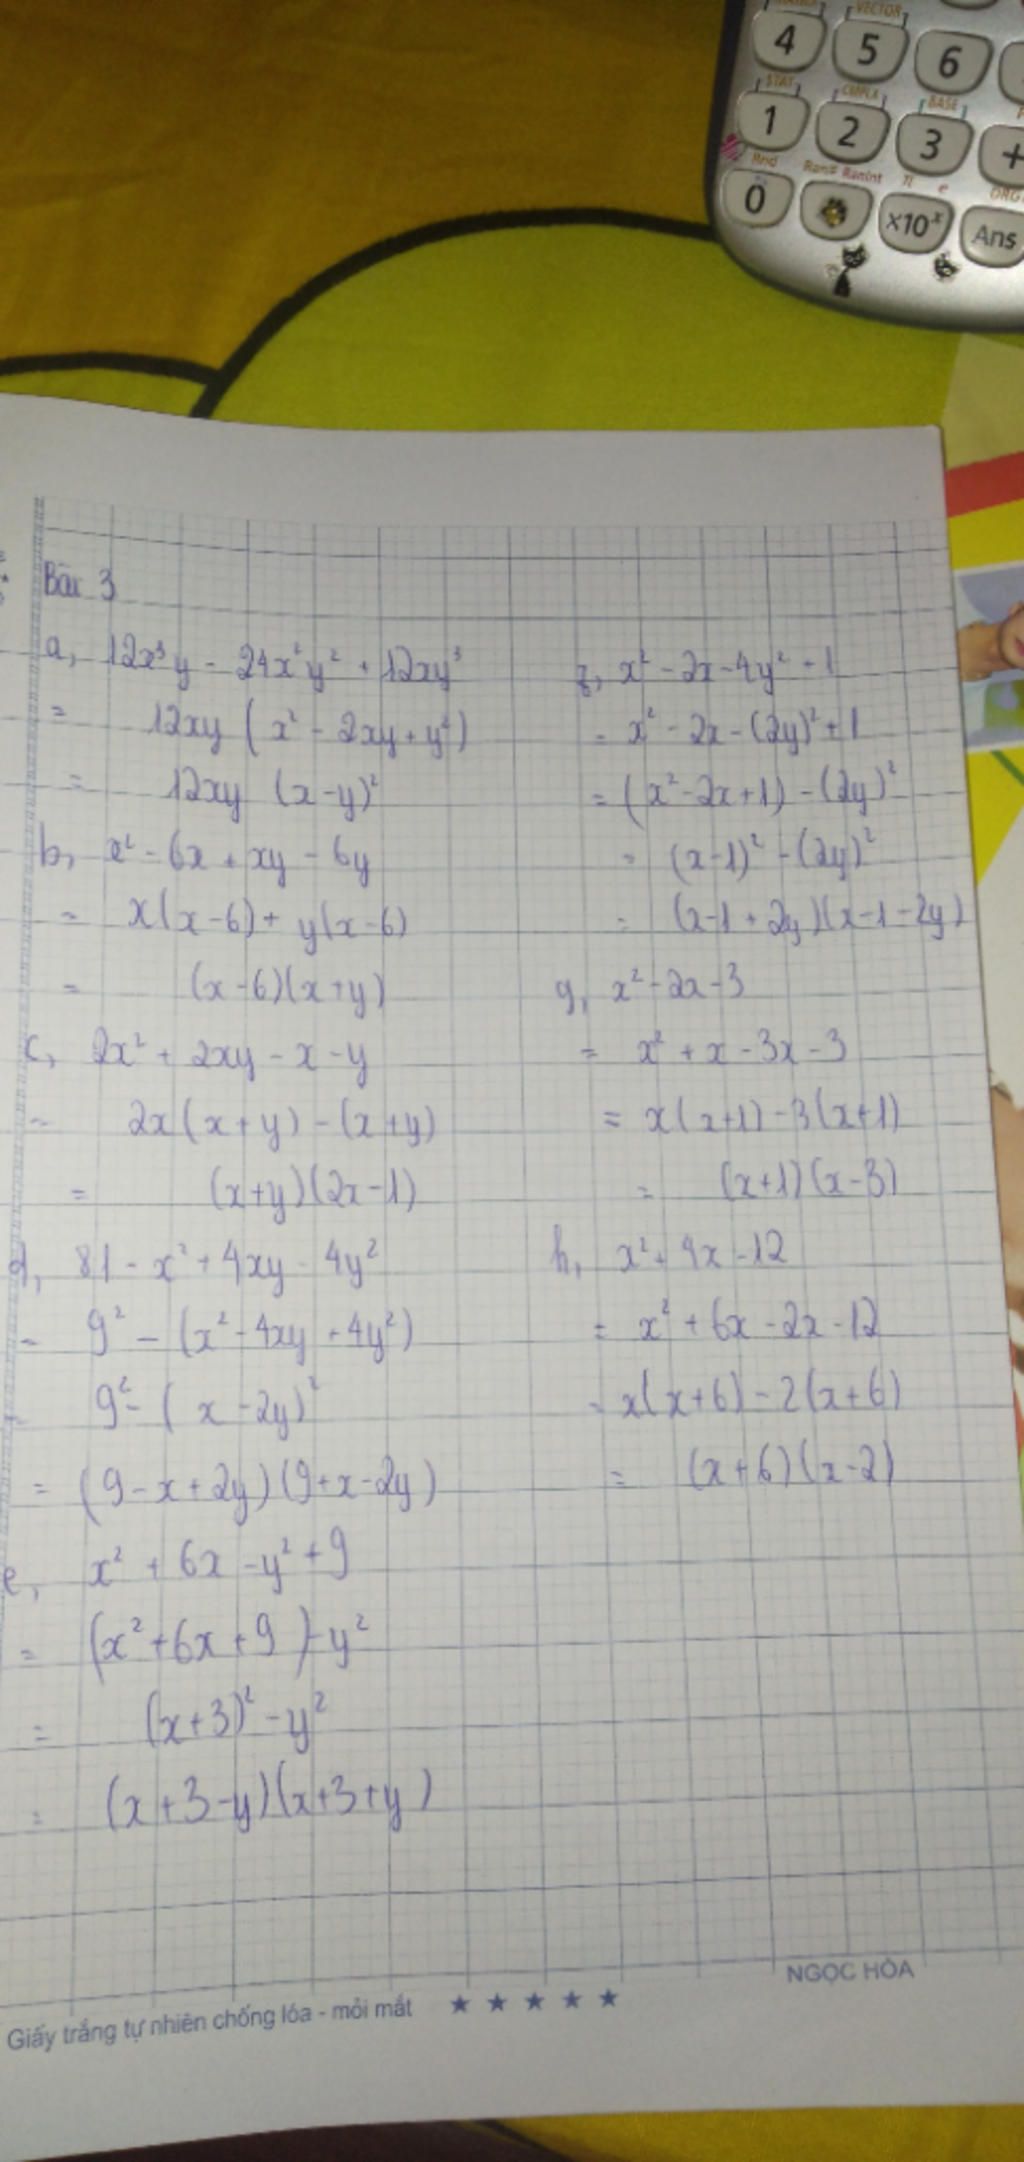 VECTOR
4 5 6
STAT CMPLX BASE
1 2 3 +
Rnd Ran# RanInt π e
0 ×10ˣ Ans
Bài 3
a, 12x³y - 24x²y² + 12xy³
= 12xy (x² - 2xy + y²)
= 12xy (x-y)²
b, x² - 6x + xy - 6y
= x(x-6) + y(x-6)
= (x-6)(x+y)
c, 2x² + 2xy - x - y
= 2x(x+y) - (x+y)
= (x+y)(2x-1)
d, 81 - x² + 4xy - 4y²
= 9² - (x² - 4xy + 4y²)
= 9² - (x - 2y)²
= (9-x+2y)(9+x-2y)
e, x² + 6x - y² + 9
= (x²+6x+9) - y²
= (x+3)² - y²
= (x+3-y)(x+3+y)
x² - 2x - 4y² + 1
= x² - 2x - (2y)² + 1
= (x²-2x+1) - (2y)²
= (x-1)² - (2y)²
= (x-1+2y)(x-1-2y)
g, x² - 2x - 3
= x² + x - 3x - 3
= x(x+1) - 3(x+1)
= (x+1)(x-3)
h, x² + 4x - 12
= x² + 6x - 2x - 12
= x(x+6) - 2(x+6)
= (x+6)(x-2)
NGỌC HÒA
Giấy trắng tự nhiên chống lóa - mỏi mắt ★ ★ ★ ★ ★